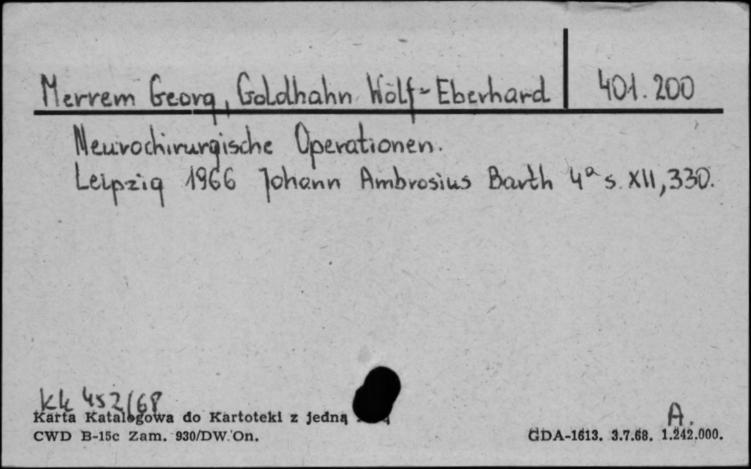 Merrem Georg, Goldhahn Wolf-Eberhard 401.200
Neurochirurgische Operationen.
Leipzig 1966 Johann Ambrosius Barth 4ª s. XII, 330.
kk 452/68
Karta Katalogowa do Kartoteki z jedną
A.
CWD B-15c Zam. 930/DW. On. GDA-1613. 3.7.68. 1.242.000.